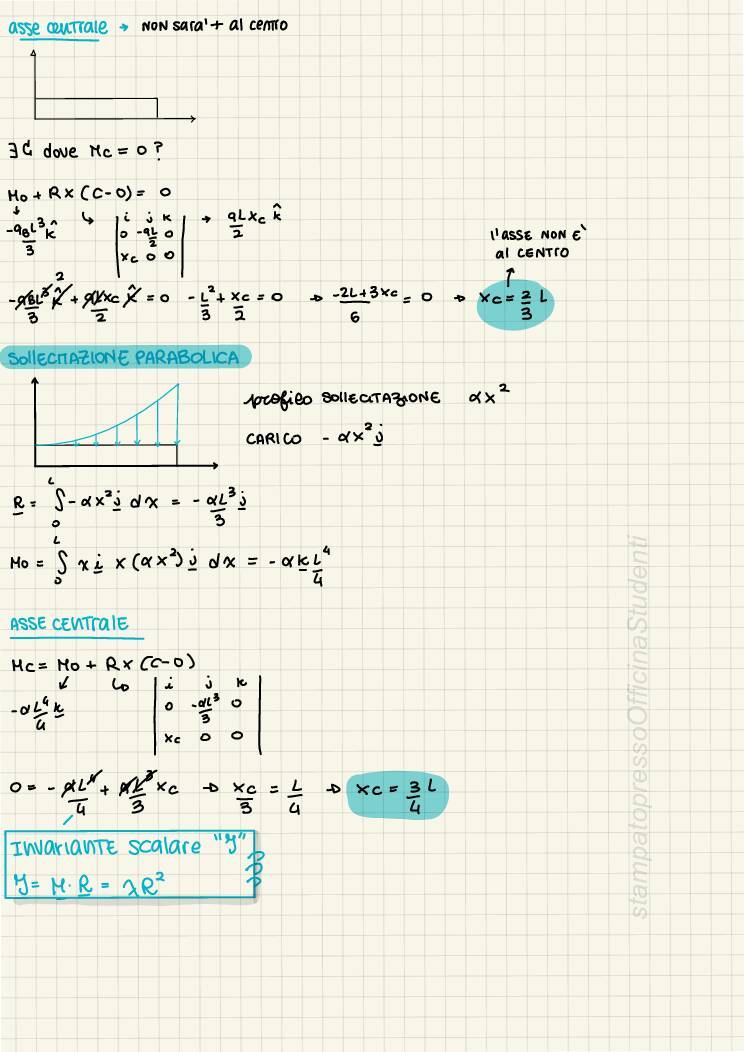 asse centrale → NON sarà + al centro
∃ C dove Mc = 0 ?
Mo + R × (C-O) = 0
-qBL³/3 k̂ ↳ | i j k | 0 -qL/2 0 | xc 0 0 | → qLxc/2 k̂
l'ASSE NON È al CENTRO
-qBL³/3 k̂ + qLxc/2 k̂ = 0 -L²/3 + xc/2 = 0 → -2L+3xc/6 = 0 → xc = 2/3 L
SOLLECITAZIONE PARABOLICA
profilo SOLLECITAZIONE αx²
CARICO - αx² j
R = ∫₀ᴸ -αx² j dx = -αL³/3 j
Mo = ∫₀ᴸ x i × (αx²) j dx = -αk L⁴/4
ASSE CENTRALE
Mc = Mo + R × (C-O)
-αL⁴/4 k ↳ | i j k | 0 -αL³/3 0 | xc 0 0 |
0 = -αL⁴/4 + αL³/3 xc → xc/3 = L/4 → xc = 3/4 L
INVARIANTE SCALARE "Y"
Y = M · R = λR²
stampatopressoOfficinaStudenti